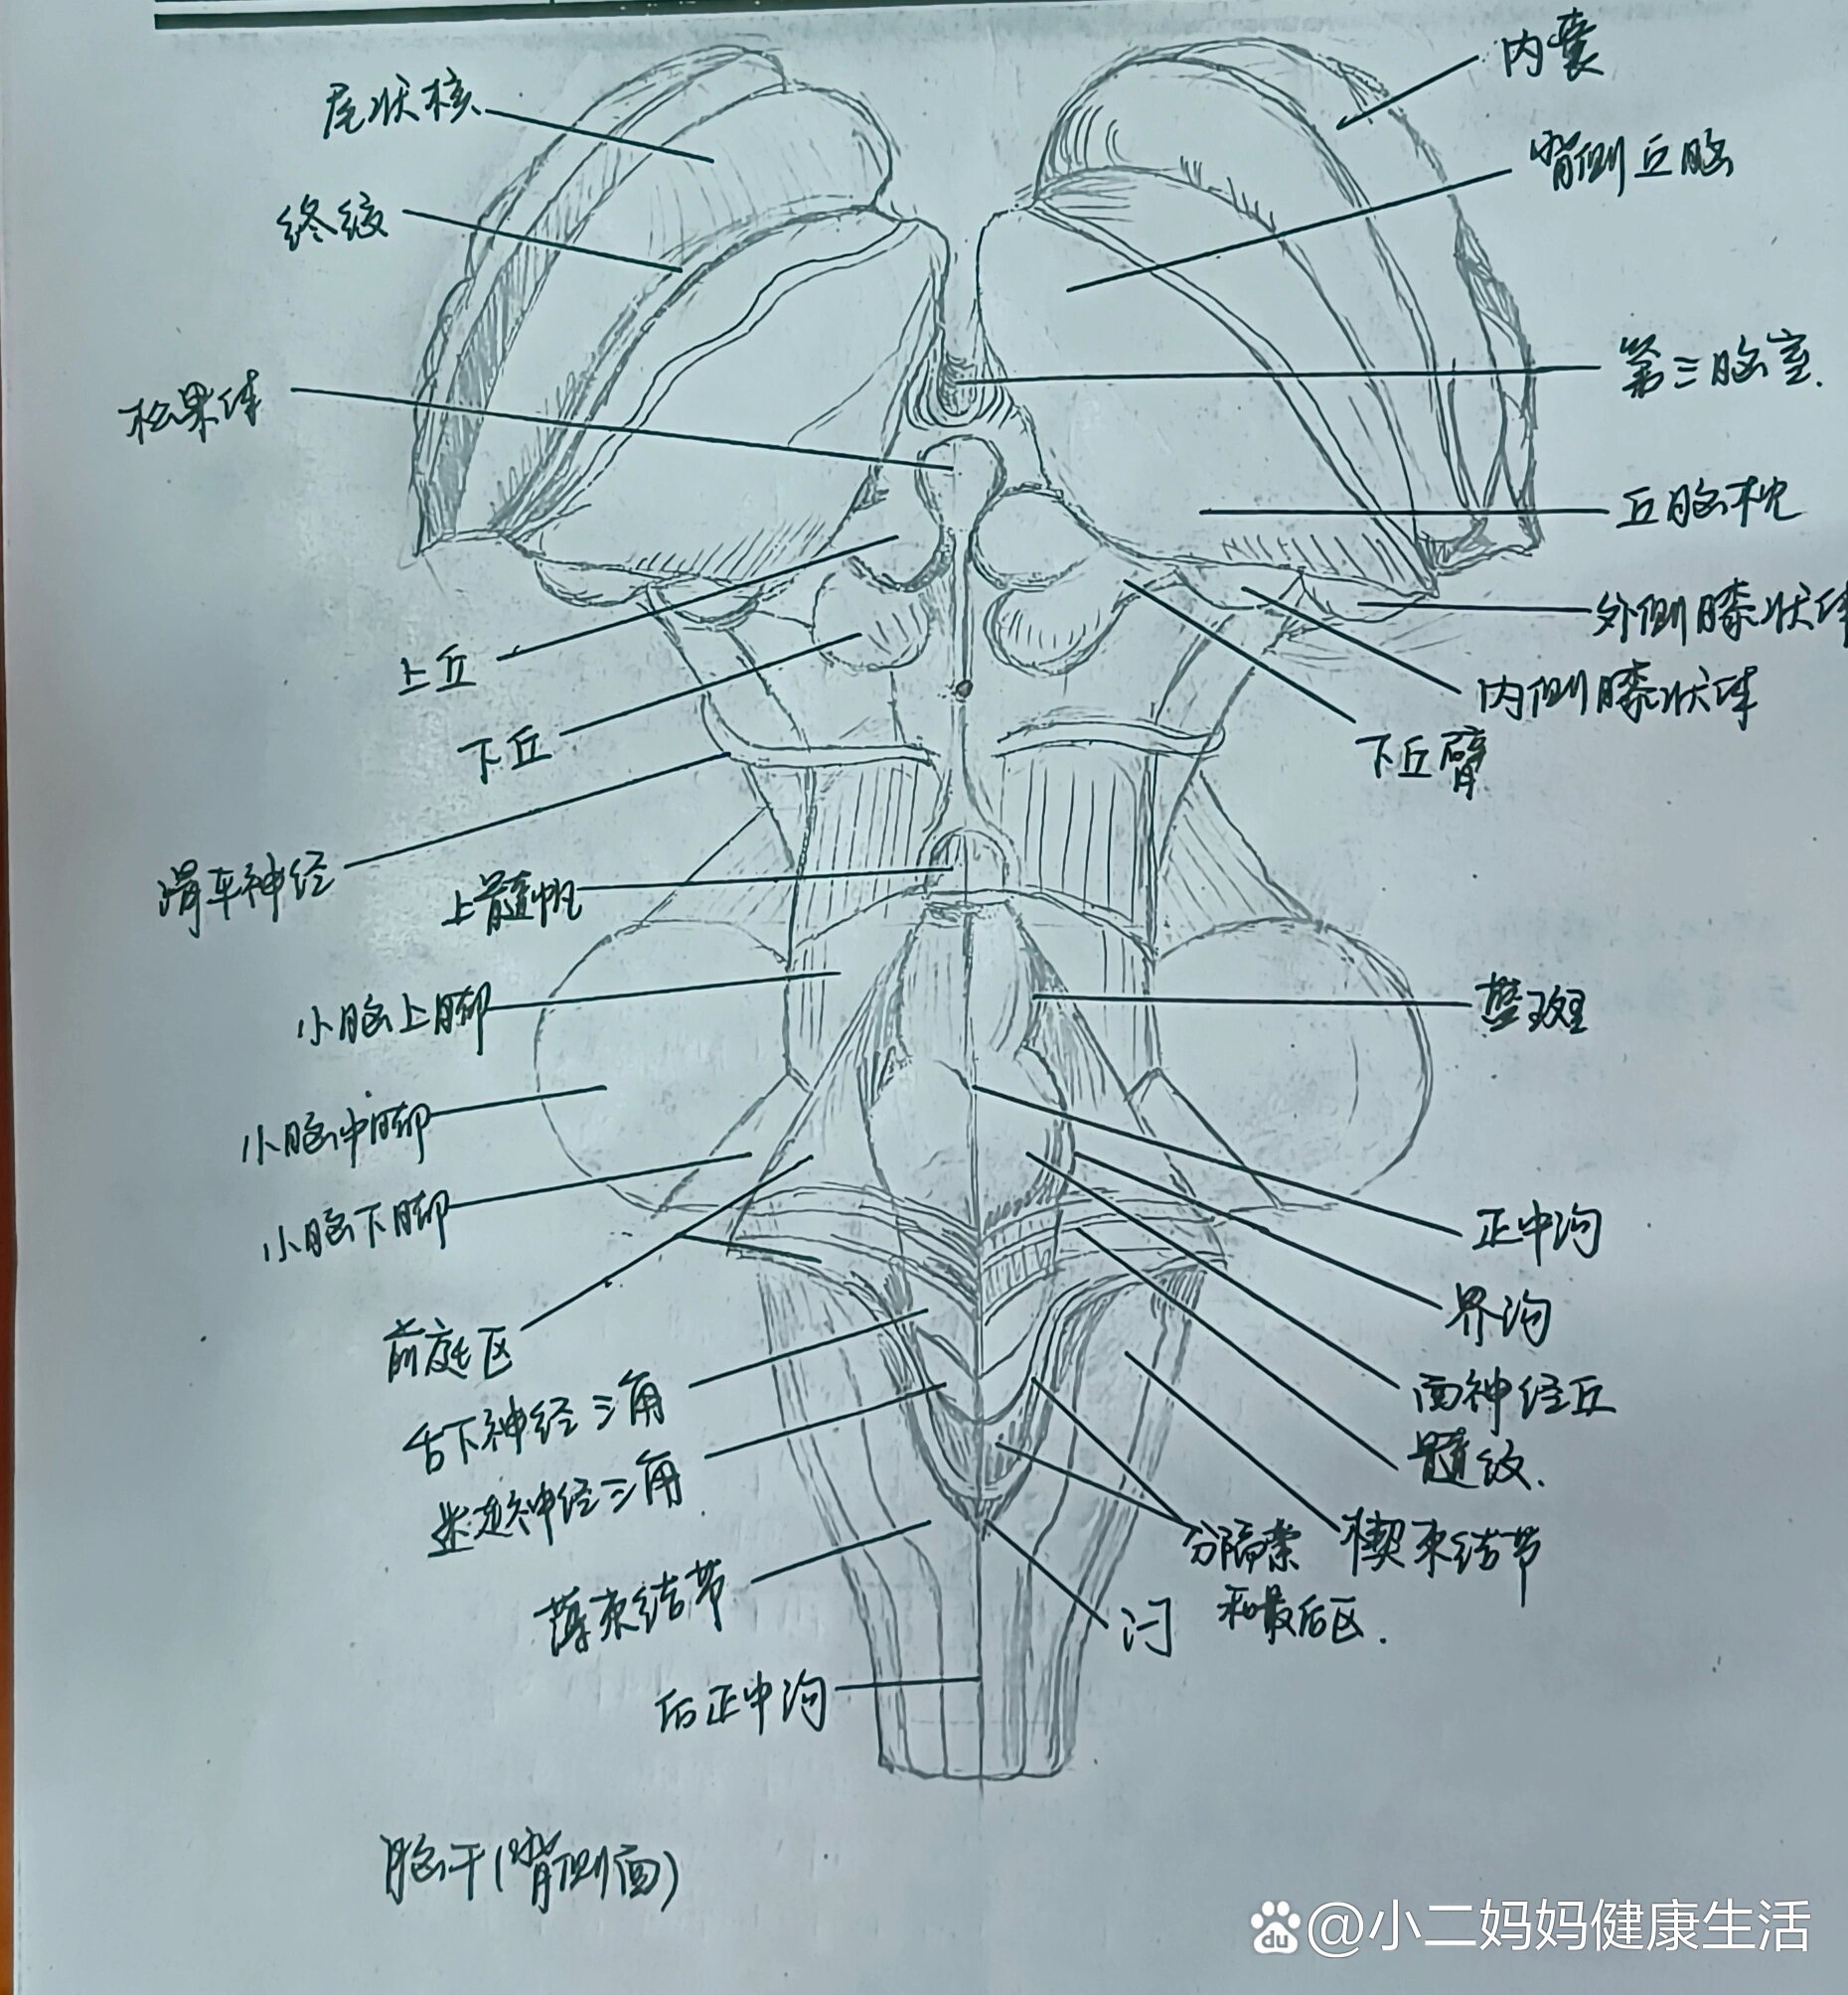 尾状核
内囊
背侧丘脑
终纹
第三脑室.
松果体
丘脑枕
外侧膝状体
上丘
内侧膝状体
下丘
下丘臂
滑车神经
上髓帆
小脑上脚
蓝斑
小脑中脚
小脑下脚
正中沟
界沟
前庭区
面神经丘
舌下神经三角
髓纹.
迷走神经三角
分隔索
和最后区.
楔束结节
薄束结节
闩
后正中沟
脑干(背侧面)
du @小二妈妈健康生活